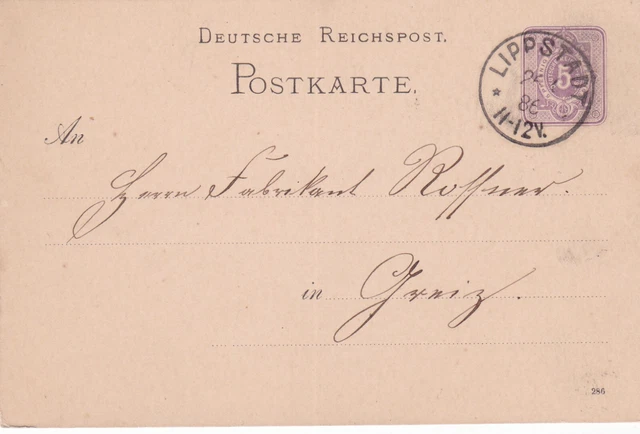 DEUTSCHE REICHSPOST.
POSTKARTE.
LIPPSTADT
86
* 11-12V.
5
An
Herrn Fabrikant Rossner.
in Greiz.
286